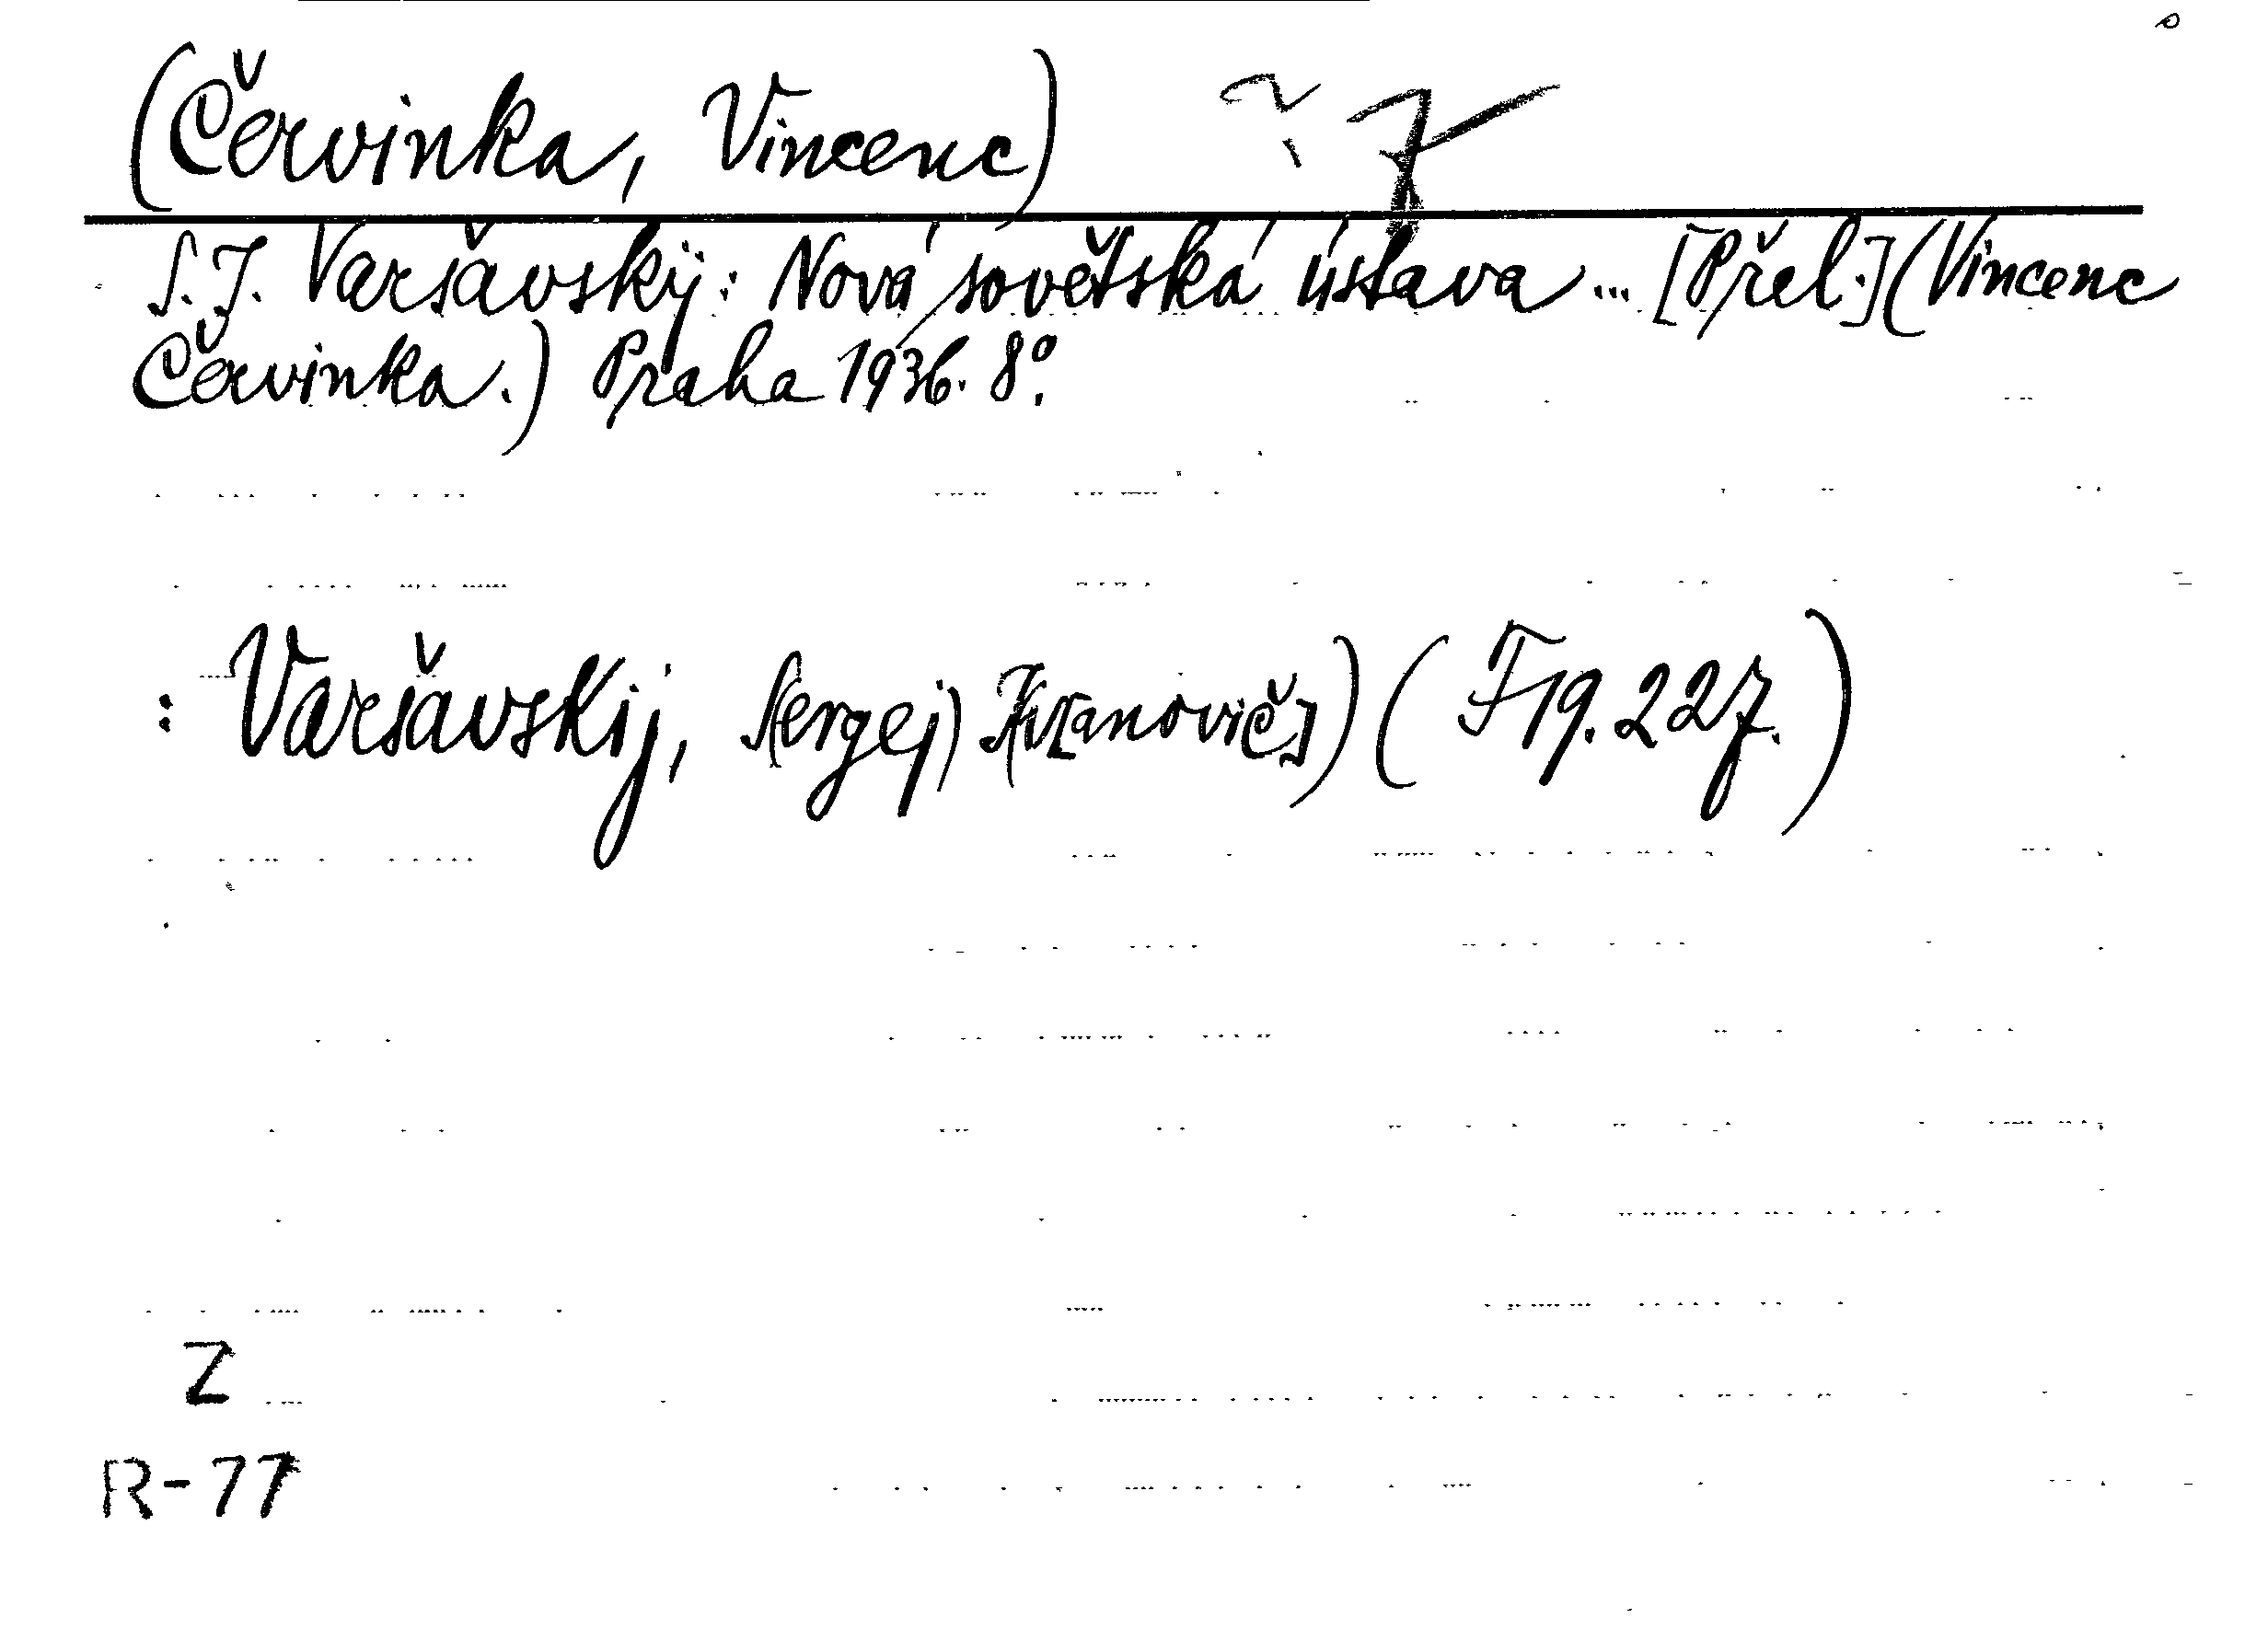 (Červinka, Vincenc)
S. J. Varšavskij: Nová sovětská ústava ... [Přel.] (Vincenc
Červinka.) Praha 1936. 8°.
: Varšavskij, S(ergej) J(v[anovič]) (F 19.227.)
Z
R-77